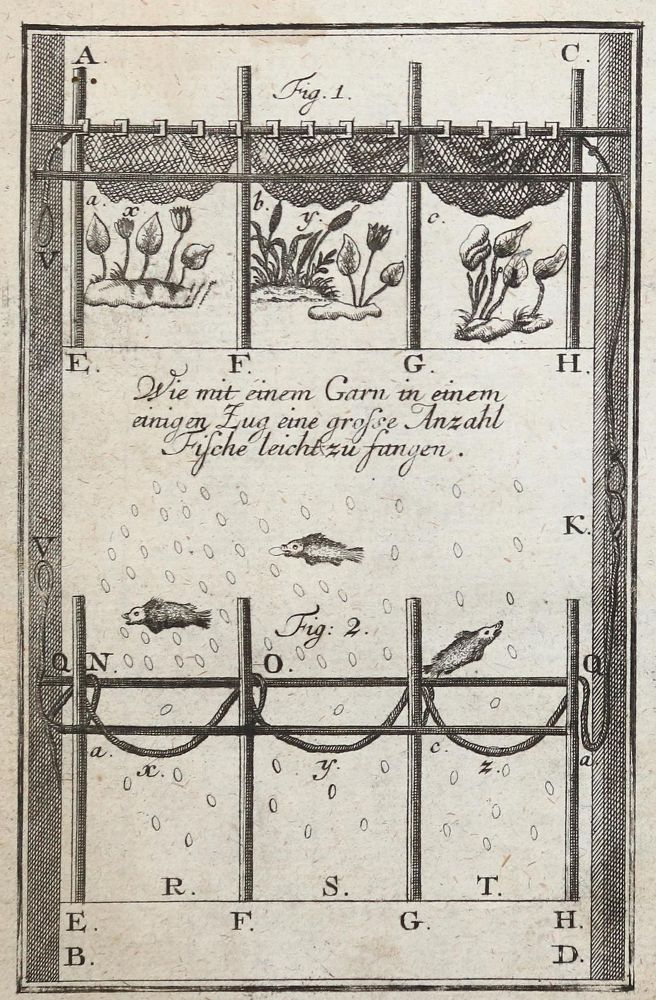 A. C.
Fig. 1.
a. x b. y. c.
V
E. F. G. H.
Wie mit einem Garn in einem
einigen Zug eine grosse Anzahl
Fische leicht zu fangen.
K.
V
Fig: 2.
Q N. O. Q
a. x. y. c. z. a
R. S. T.
E. F. G. H.
B. D.